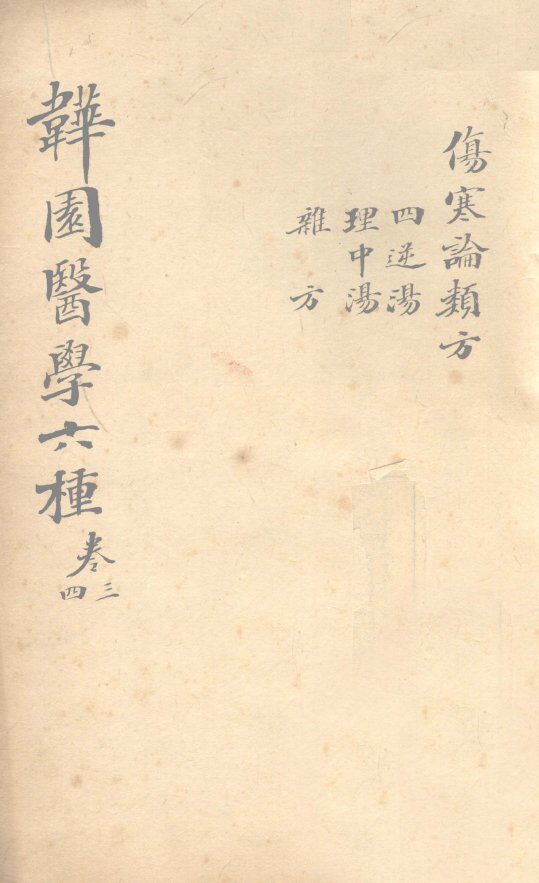 傷寒論類方
四逆湯
理中湯
雜方
韡園醫學六種
卷三
四